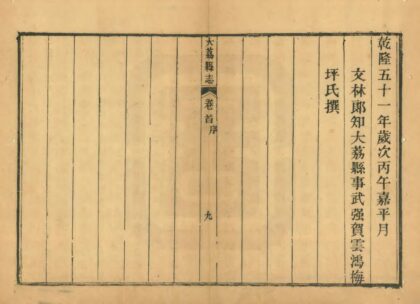 乾隆五十一年歲次丙午嘉平月
文林郎知大荔縣事武强賀雲鴻梅
坪氏撰
大荔縣志
卷首序
九